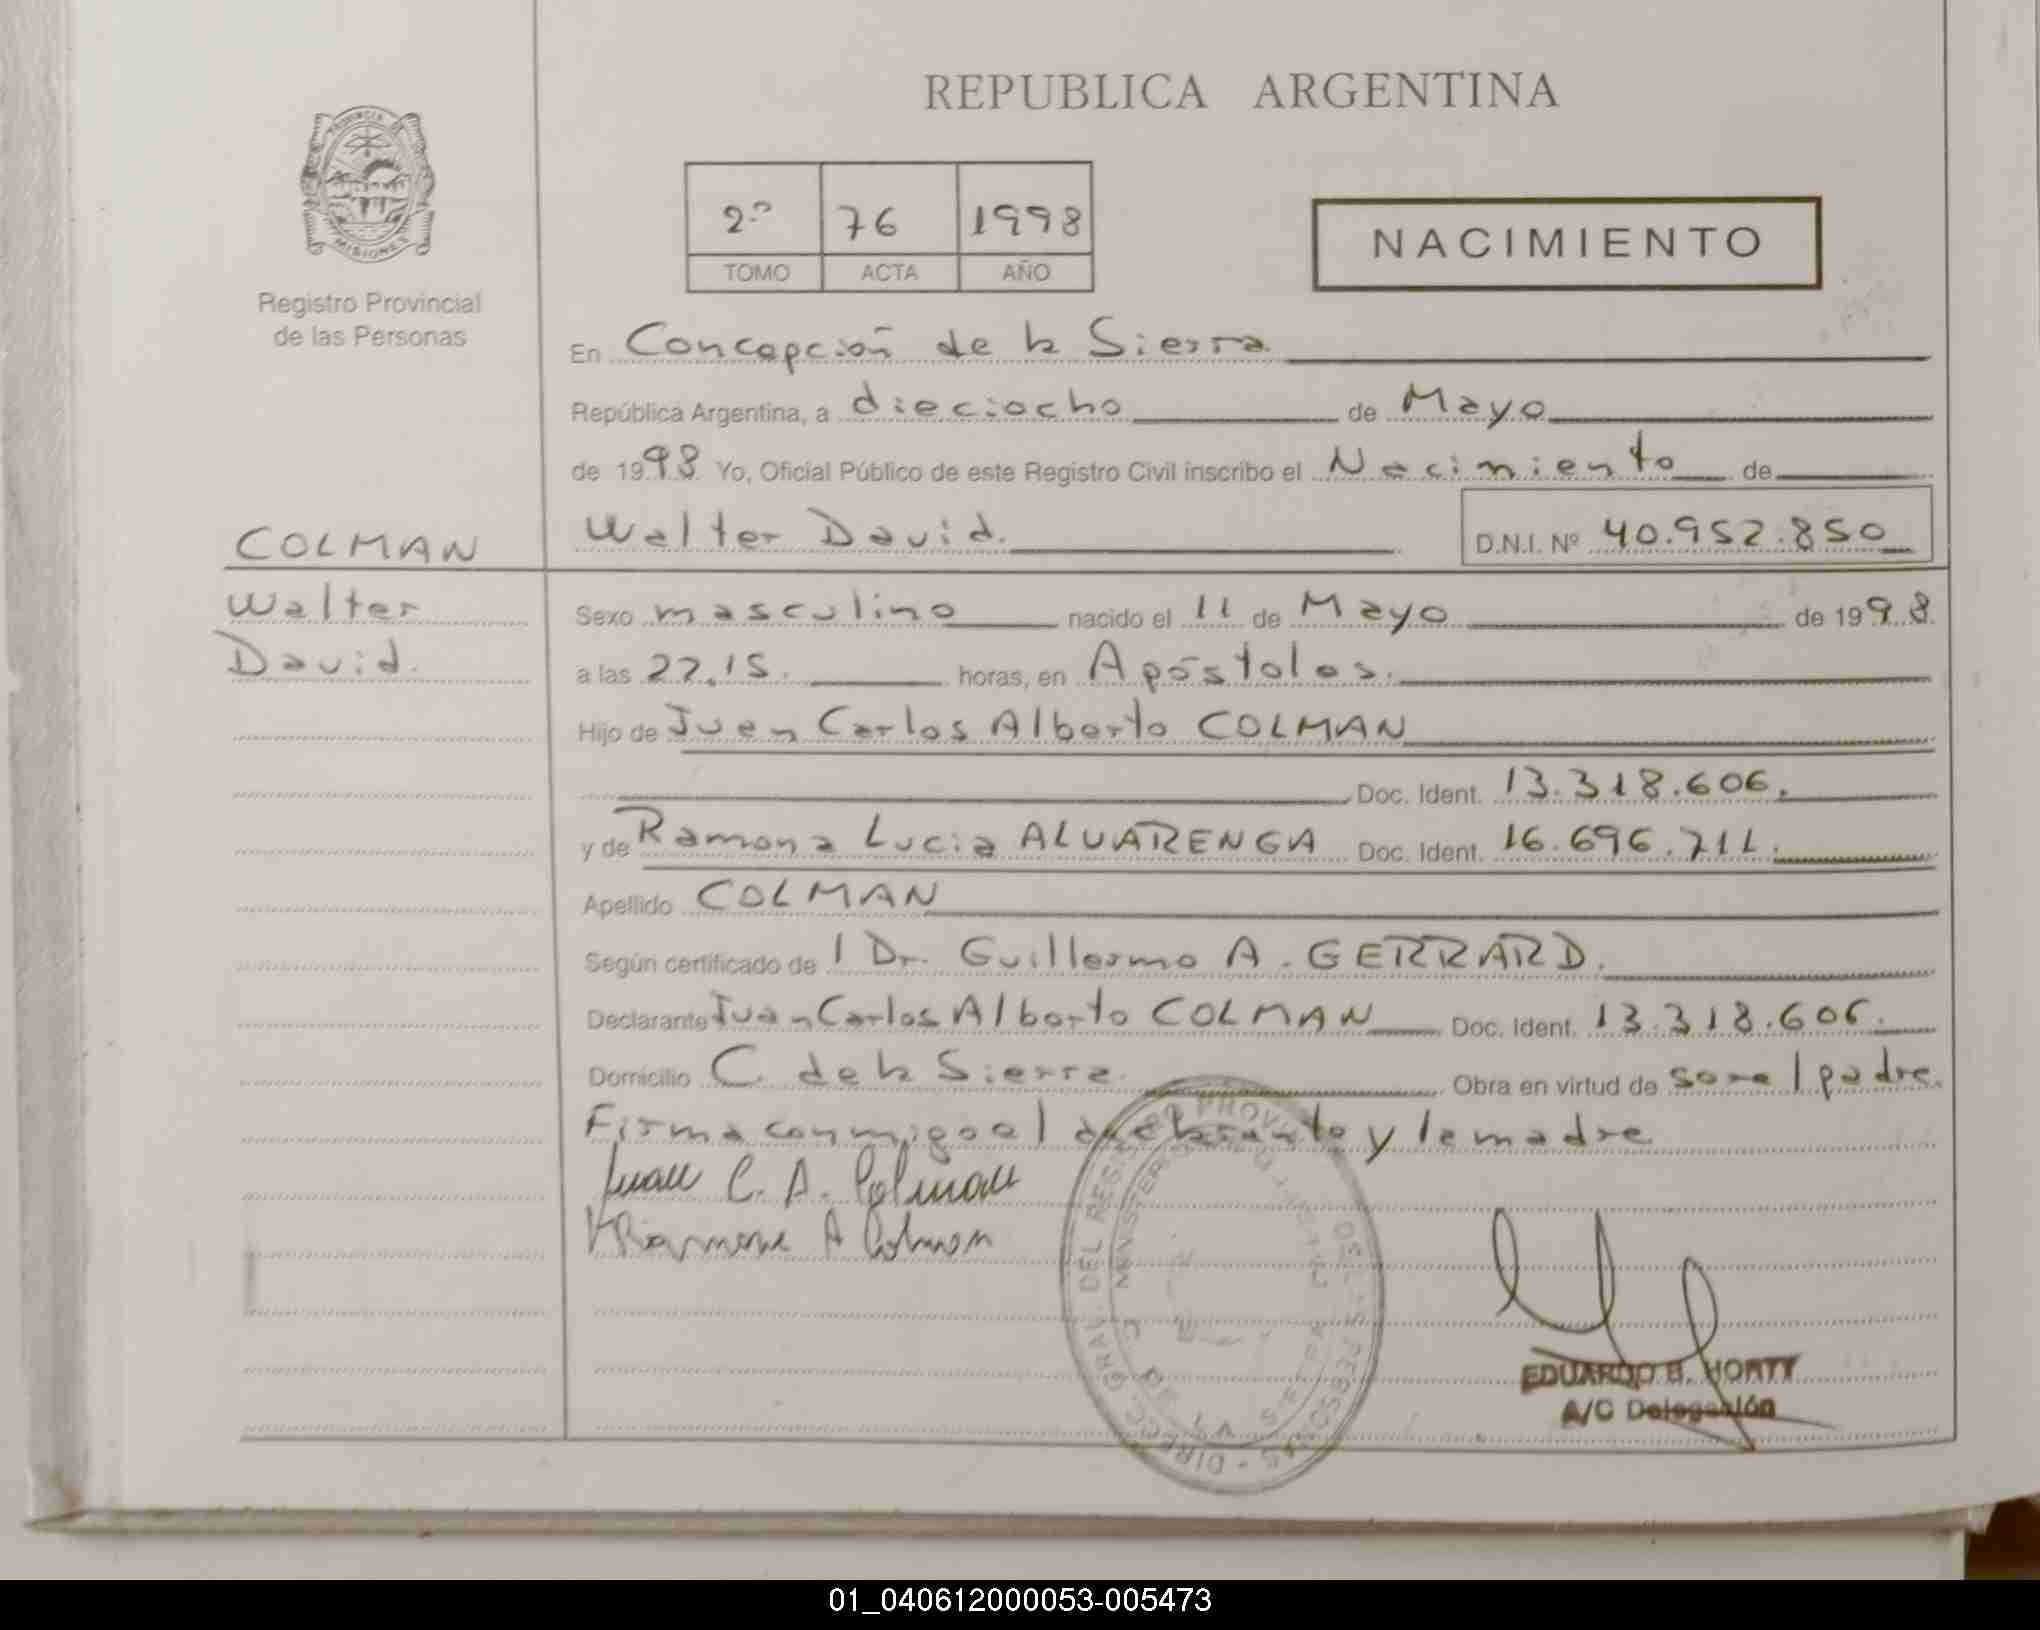 REPUBLICA ARGENTINA
PROVINCIA DE
MISIONES
Registro Provincial
de las Personas
2º 76 1998
TOMO ACTA AÑO
NACIMIENTO
En Concepción de la Sierra
República Argentina, a dieciocho de Mayo
de 1998 Yo, Oficial Público de este Registro Civil inscribo el Nacimiento de
Walter David. D.N.I. Nº 40.952.850
COLMAN
Walter
David.
Sexo masculino nacido el 11 de Mayo de 1998
a las 22.15. horas, en Apóstoles.
Hijo de Juan Carlos Alberto COLMAN
Doc. Ident. 13.318.606.
y de Ramona Lucia ALVARENGA Doc. Ident. 16.696.711.
Apellido COLMAN
Según certificado de l Dr. Guillermo A. GERRARD.
Declarante Juan Carlos Alberto COLMAN Doc. Ident. 13.318.606.
Domicilio C. de la Sierra Obra en virtud de ser el padre.
Firma conmigo el declarante y la madre
Juan C. A. Colman
Ramona A Colman
DIRECC. GRAL. DEL REGISTRO PROV. DE LAS PERSONAS
MINISTERIO DE
EDUARDO B. HORTT
A/C Delegación
01_040612000053-005473